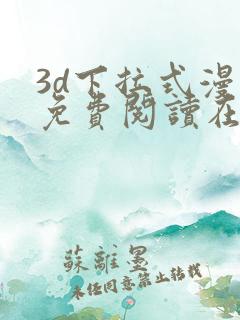 3d下拉式漫
免費閱讀在
蘇離墨
未任同意禁止转载